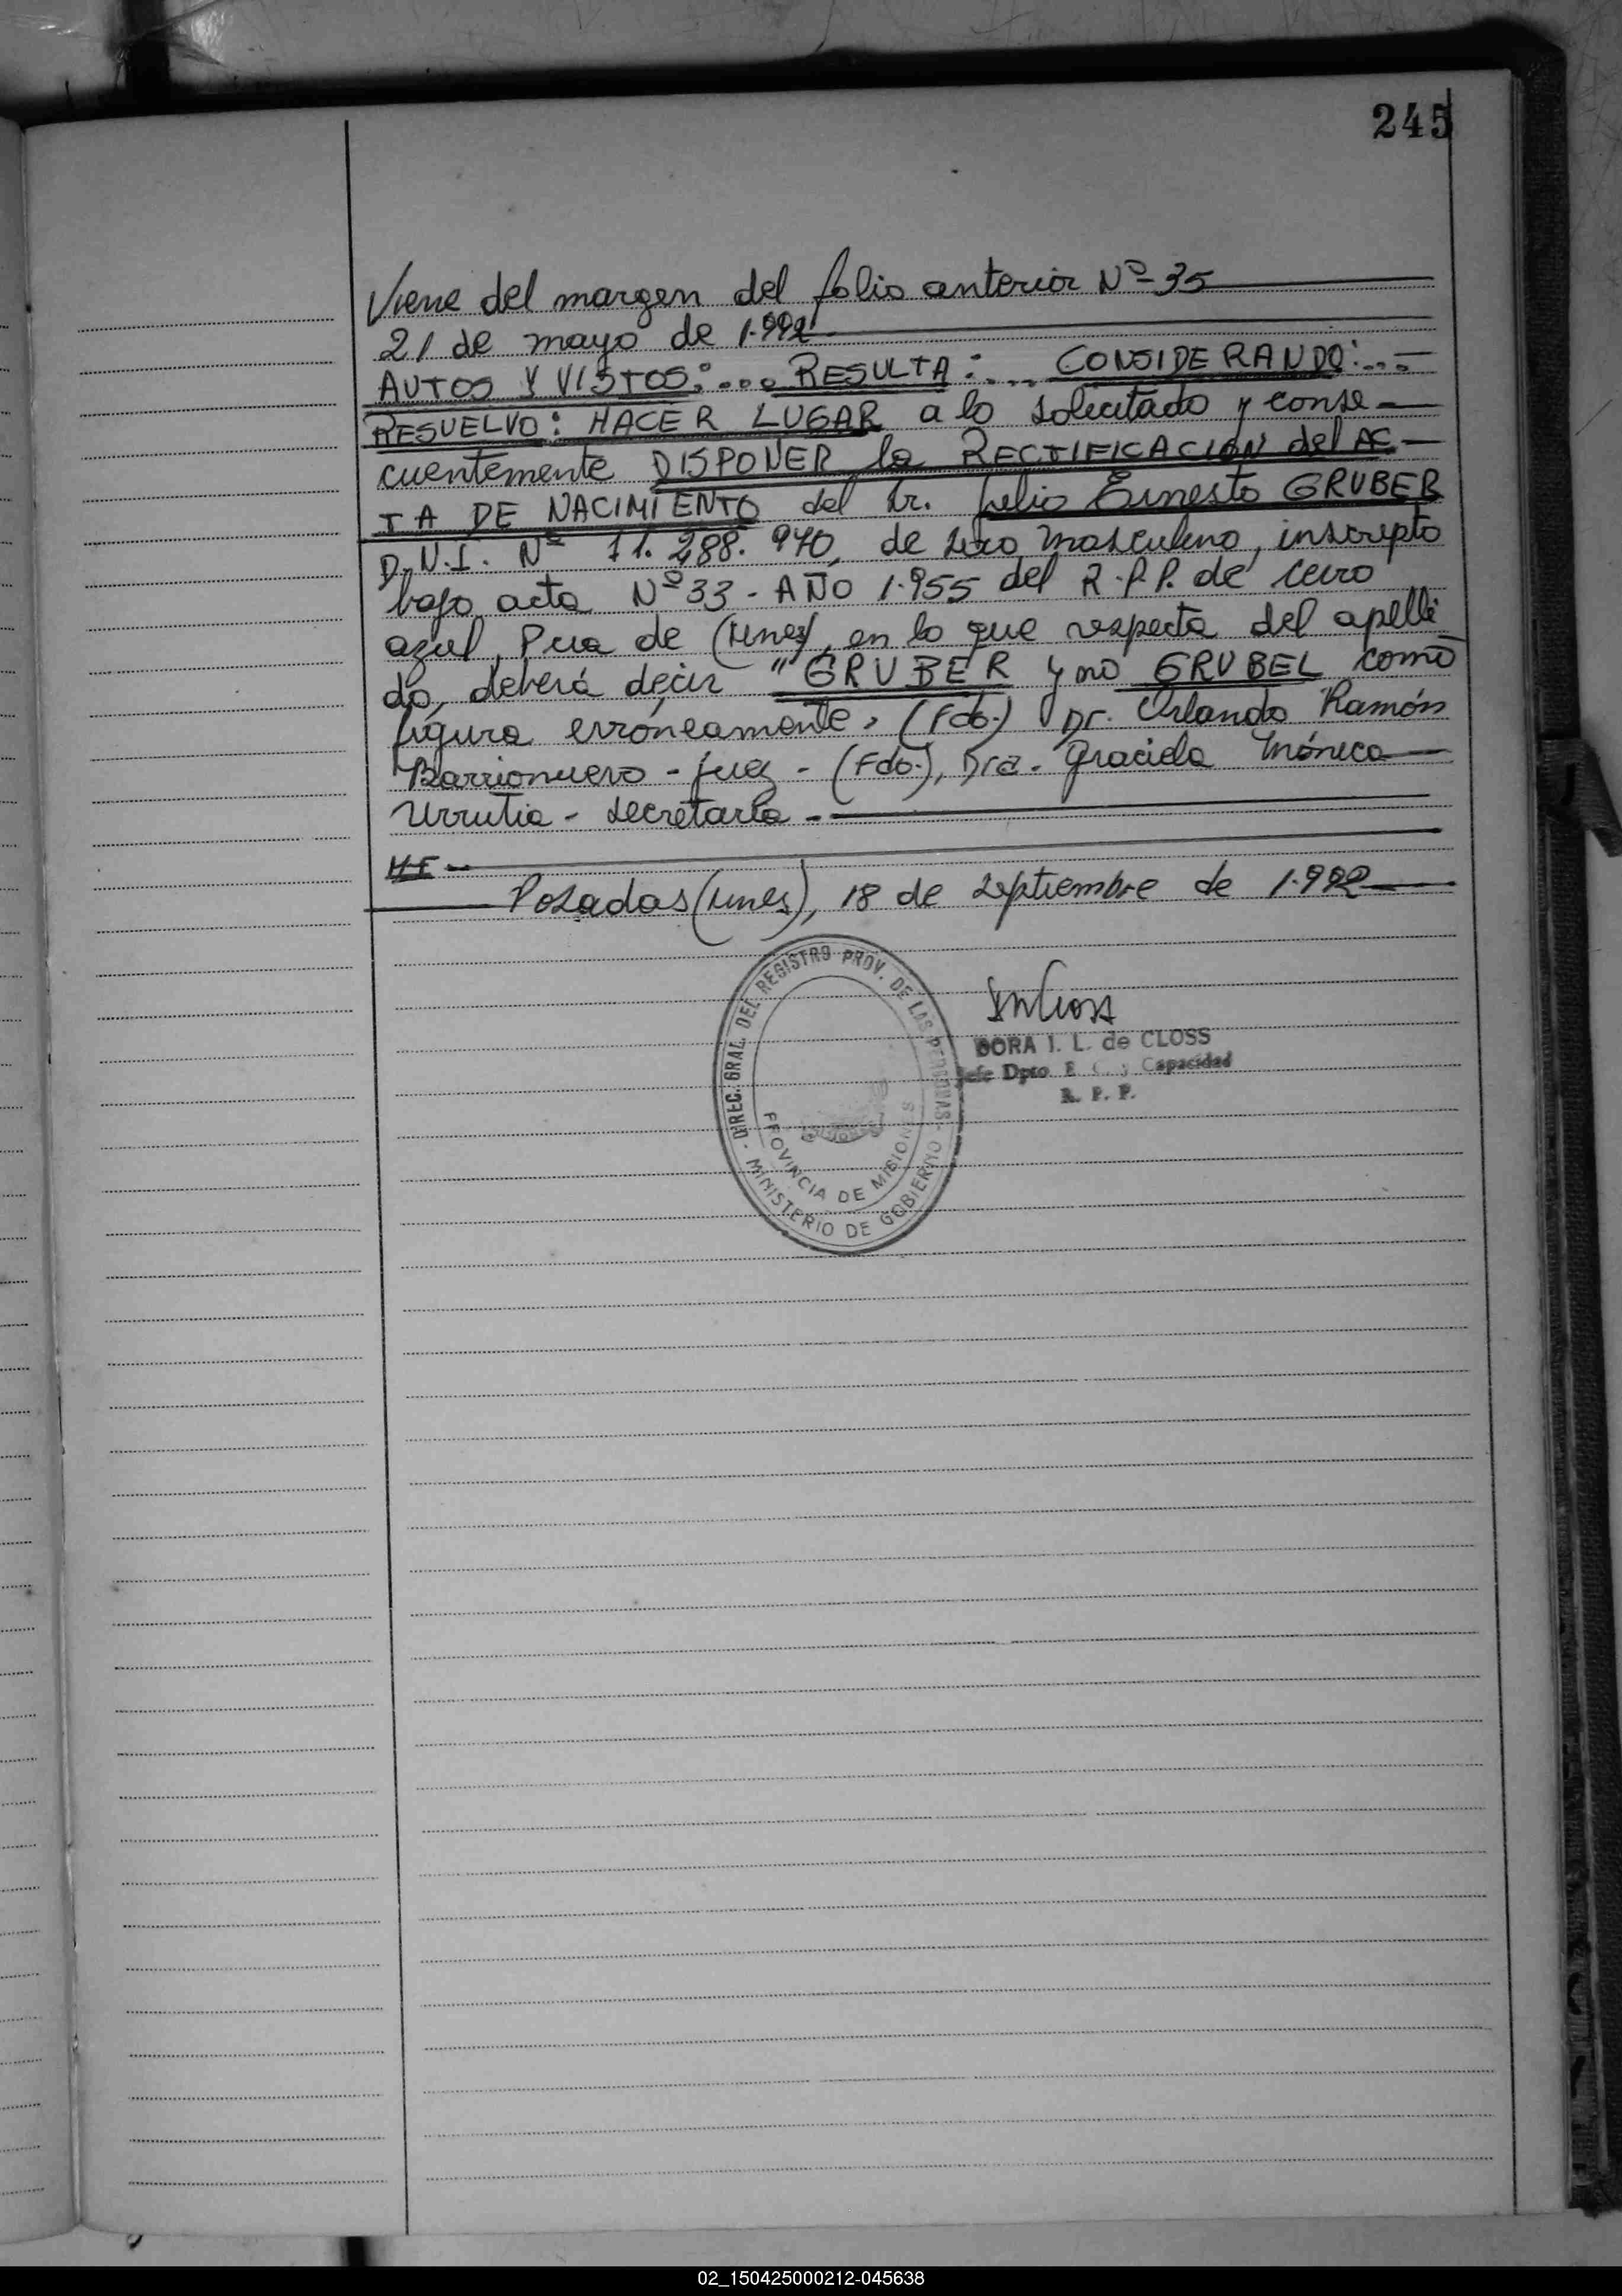 245
Viene del margen del folio anterior Nº-35
21 de mayo de 1.992
AUTOS Y VISTOS:... RESULTA:.... CONSIDERANDO:...-
RESUELVO: HACER LUGAR a lo solicitado y conse-
cuentemente DISPONER la RECTIFICACIÓN del AC-
TA DE NACIMIENTO del Sr. Julio Ernesto GRUBER
D.N.I. Nº 11.288.940, de sexo masculino, inscripto
bajo acta Nº 33 - AÑO 1.955 del R.P.P. de cerro
azul, Pcia de (Mnes), en lo que respecta del apelli
do, deberá decir "GRUBER y no GRUBEL como
figura erróneamente, (Fdo.) Dr. Orlando Ramón
Barrionuevo - Juez - (Fdo.), Dra. Graciela Mónica
Urrutia - secretaria -
Posadas (Mnes), 18 de septiembre de 1.992
DIREC. GRAL. DEL REGISTRO PROV. DE LAS PERSONAS
PROVINCIA DE MISIONES
MINISTERIO DE GOBIERNO
DORA I. L. de CLOSS
Jefe Dpto. E. C. y Capacidad
R. P. P.
02_150425000212-045638